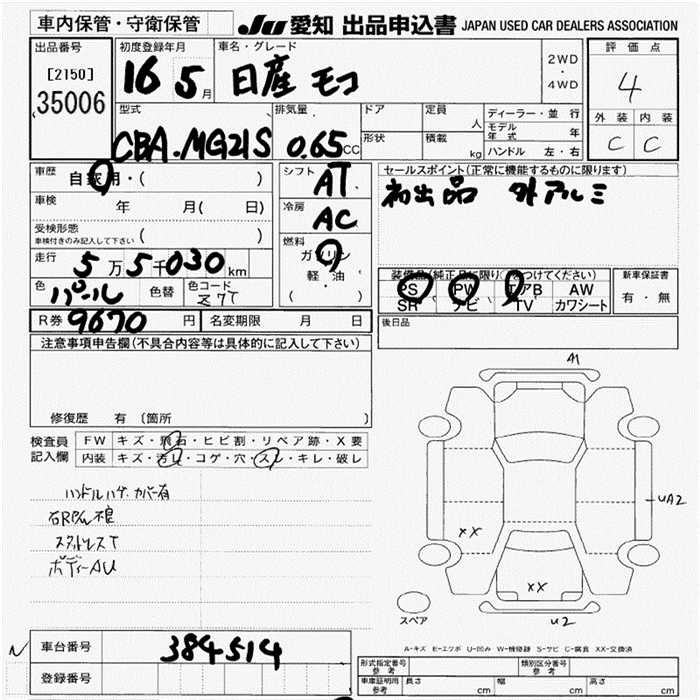 車内保管・守衛保管
JU 愛知 出品申込書 JAPAN USED CAR DEALERS ASSOCIATION
出品番号
[2150]
35006
初度登録年月
16 5 月
車名・グレード
日産 モコ
2WD
・
4WD
評価点
4
外装 内装
C C
型式
CBA・MG21S
排気量
0.65 CC
ドア
形状
定員 人
積載 kg
ディーラー・並行
モデル年式 年
ハンドル 左・右
車歴
自家用・( )
車検 年 月( 日)
受検形態
車検付きのみ記入して下さい ( )
走行
5万5千030km
色
パール
色替
色コード
Z7T
R券 9670 円
名変期限 月 日
シフト
AT
冷房
AC
燃料
ガソリン
軽・油
( )
セールスポイント(正常に機能するものに限ります)
初出品 外アルミ
装備品(純正品に限り○をつけてください)
PS PW エアB AW
SR ナビ TV カワシート
新車保証書
有・無
後日品
注意事項申告欄(不具合内容等は具体的に記入して下さい)
修復歴 有 〔箇所 〕
検査員記入欄
FW キズ・飛石・ヒビ割・リペア跡・X要
内装 キズ・汚レ・コゲ・穴・スレ・キレ・破レ
ハンドルハゲ・カバー有
石RPん不良
スタットレスT
ボディーAU
A1
UA2
XX
XX
U2
スペア
A-キズ E-エクボ U-凹み W-補修跡 S-サビ C-腐食 XX-交換済
車台番号 384514
登録番号
形式指定番号
参考
類別区分番号
参考
車庫証明用
参考
長さ cm 幅 cm 高さ cm